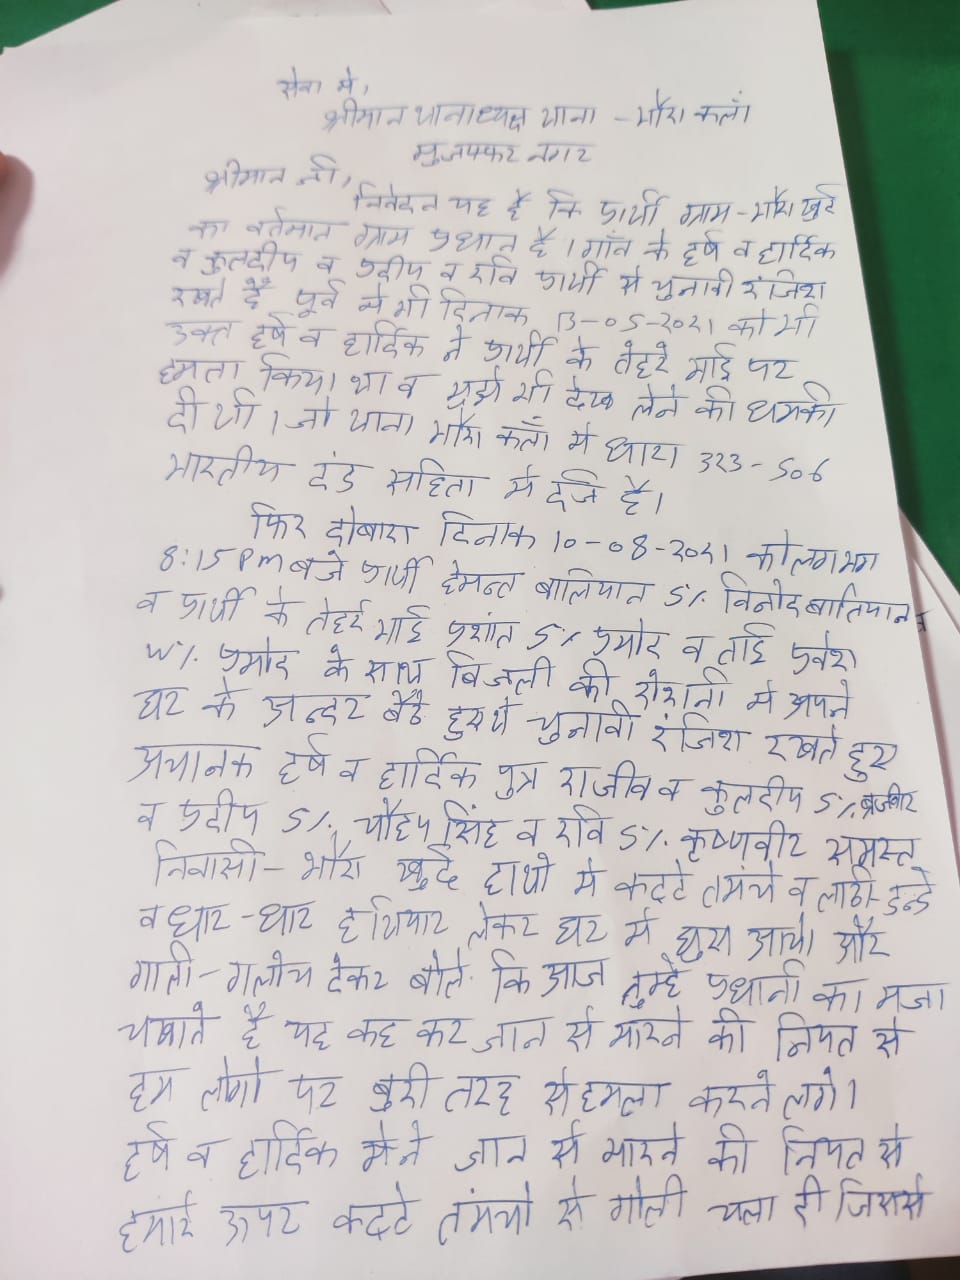 सेवा में,
श्रीमान थानाध्यक्ष थाना - भौरा कलाँ
मुजफ्फर नगर
श्रीमान जी,
निवेदन यह है कि प्रार्थी ग्राम - भौरा खुर्द
का वर्तमान ग्राम प्रधान है। गाँव के हर्ष व हार्दिक
व कुलदीप व प्रदीप व रवि प्रार्थी से चुनावी रंजिश
रखते हैं पूर्व में भी दिनाक 13-05-2021 को भी
उक्त हर्ष व हार्दिक ने प्रार्थी के तेहरे भाई पर
हमला किया था व मुझे भी देख लेने की धमकी
दी थी। जो थाना भौरा कलाँ में धारा 323-506
भारतीय दंड सहिता में दर्ज है।
फिर दोबारा दिनाक 10-08-2021 को लगभग
8:15 Pm बजे प्रार्थी हेमन्त बालियान S/. विनोद बालियान व
व प्रार्थी के तेहरे भाई प्रशांत S/. प्रमोद व ताई प्रवेश
W/. प्रमोद के साथ बिजली की रोशनी में अपने
घर के अन्दर बैठे हुए थे चुनावी रंजिश रखते हुए
अचानक हर्ष व हार्दिक पुत्र राजीव व कुलदीप S/. ब्रजवीर
व प्रदीप S/. सिंह व रवि S/. कृष्णवीर समस्त
निवासी - भौरा खुर्द हाथो में कटटे तमंचे व लाठी-डन्डे
व धार-धार हथियार लेकर घर में घुस आये। और
गाली-गलोच देकर बोले कि आज तुम्हे प्रधानी का मजा
चखाते है यह कह कर जान से मारने की नियत से
हम लोगो पर बुरी तरह से हमला करने लगे।
हर्ष व हार्दिक ने जान से मारने की नियत से
हमारे ऊपर कटटे तमंचो से गोली चला दी जिससे